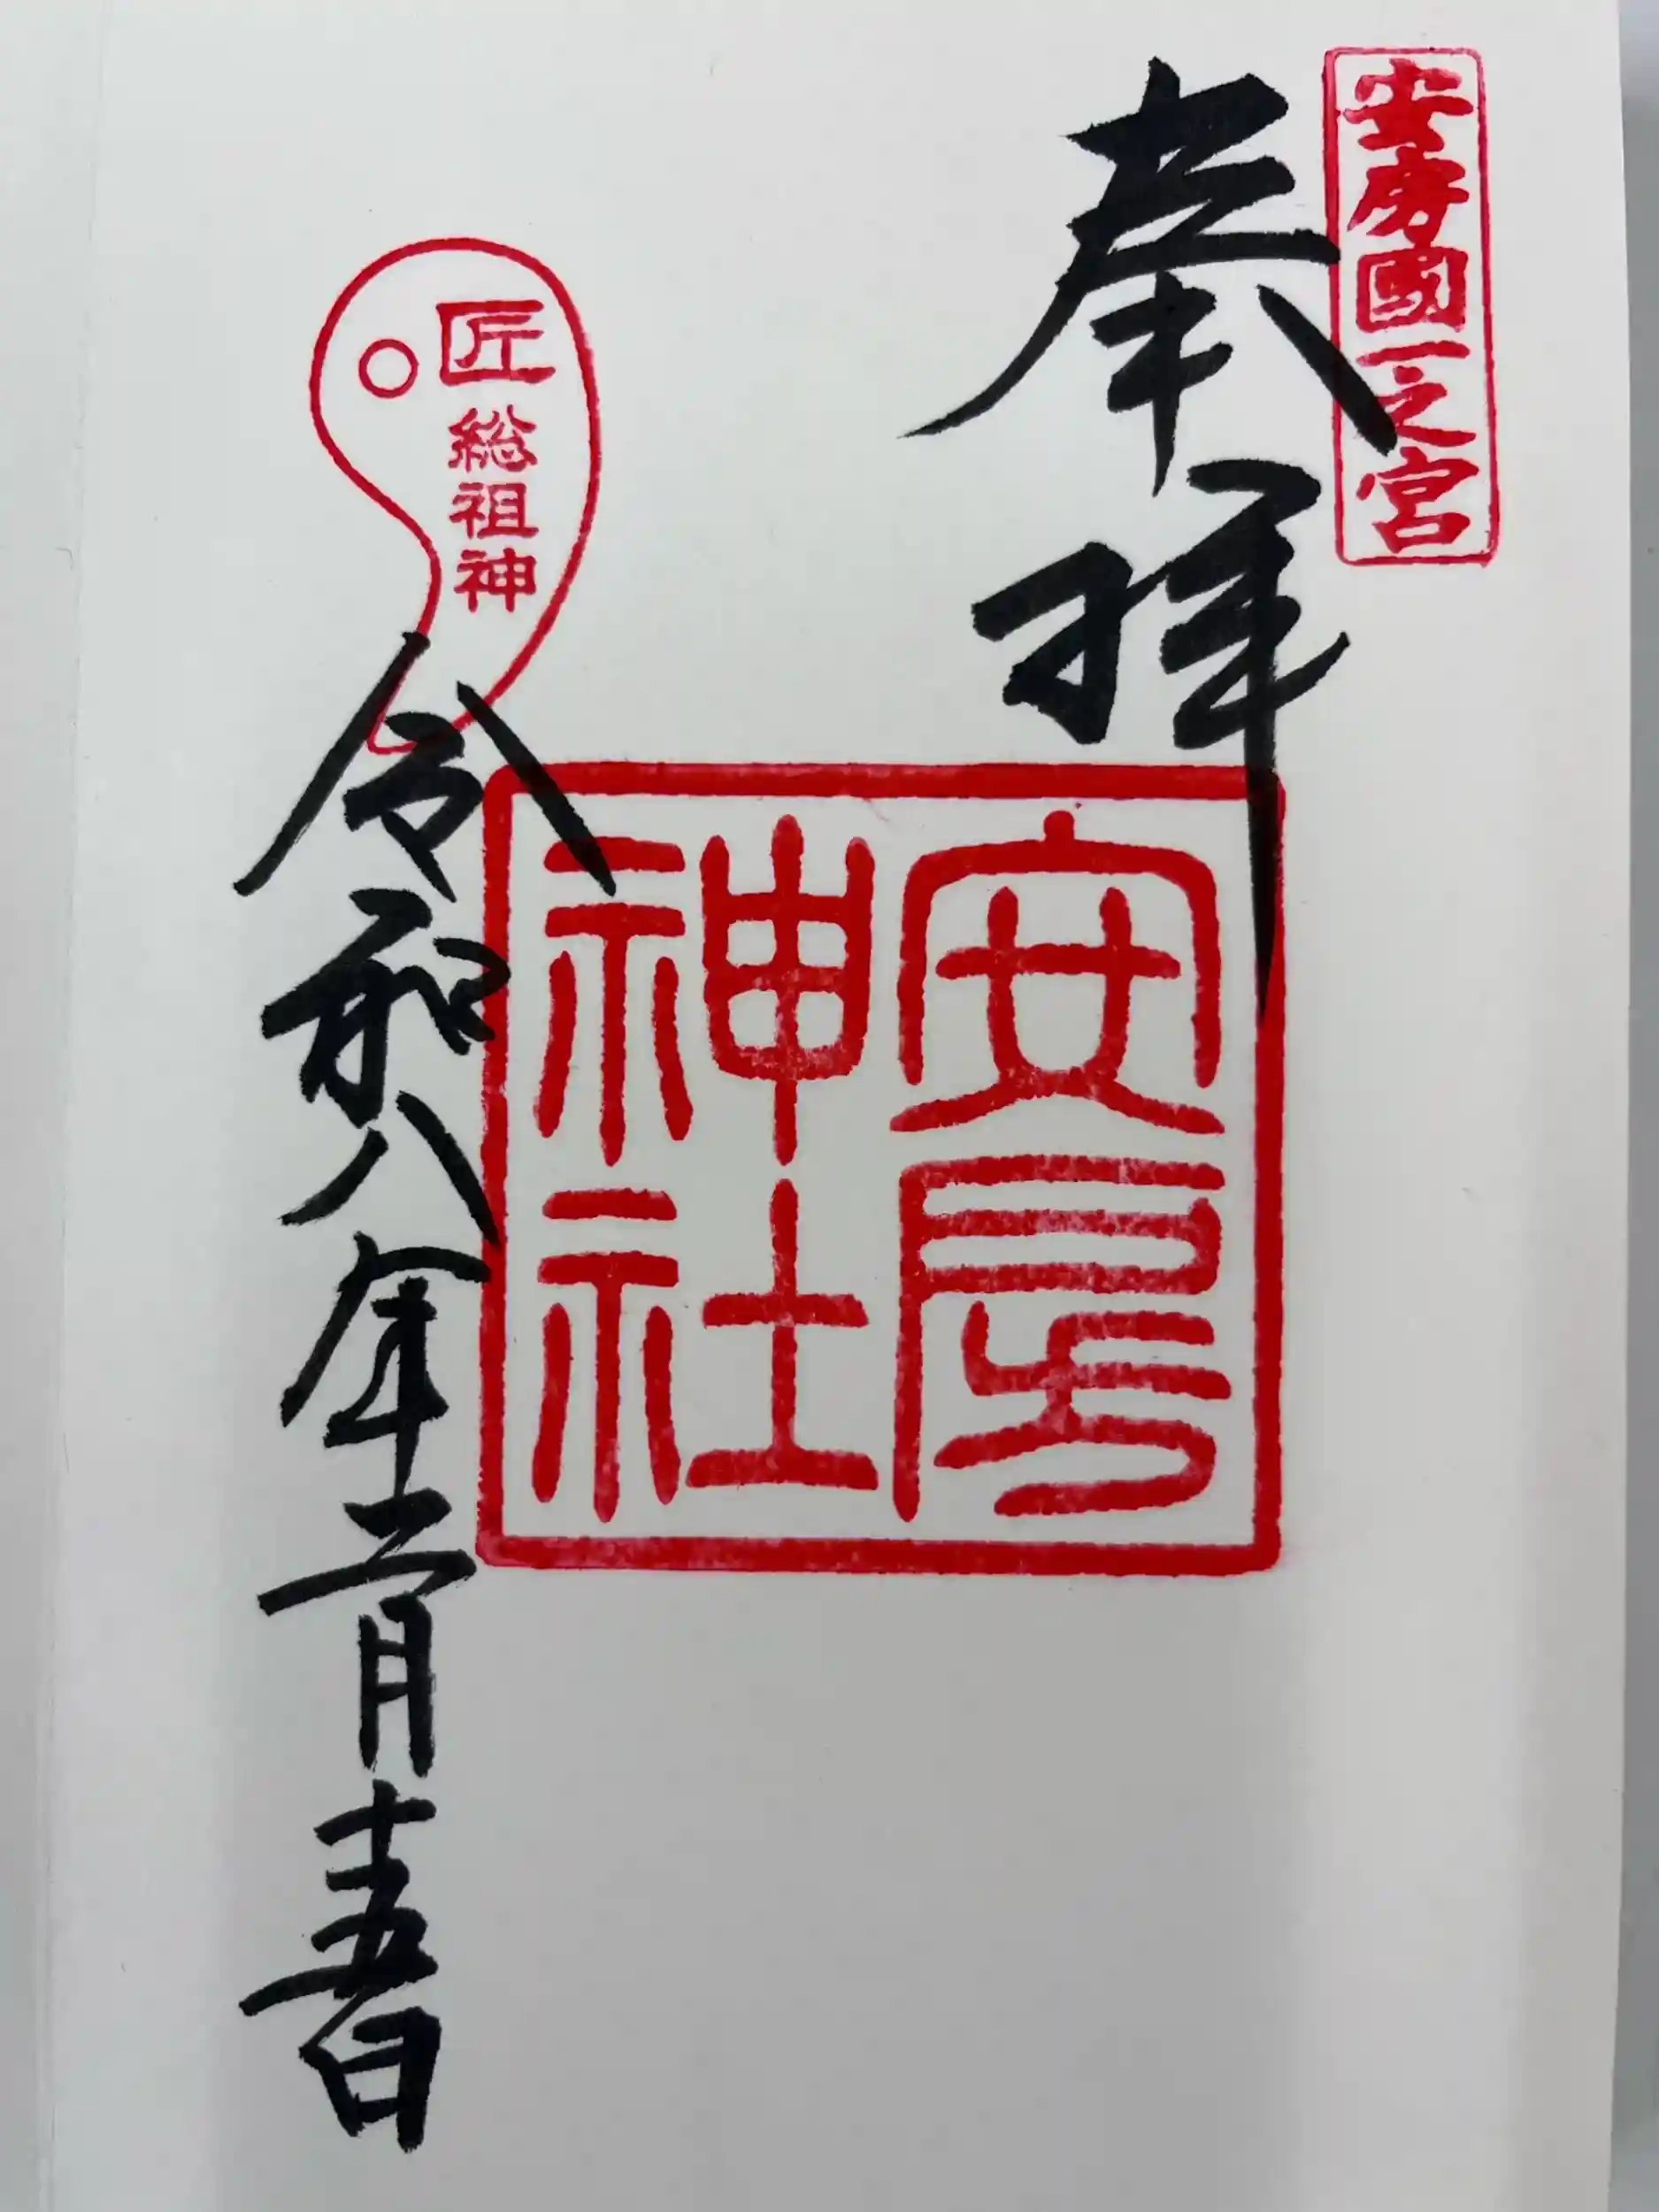 安房國一之宮
奉拝
安房
神社
匠総祖神
令和八年二月十五日